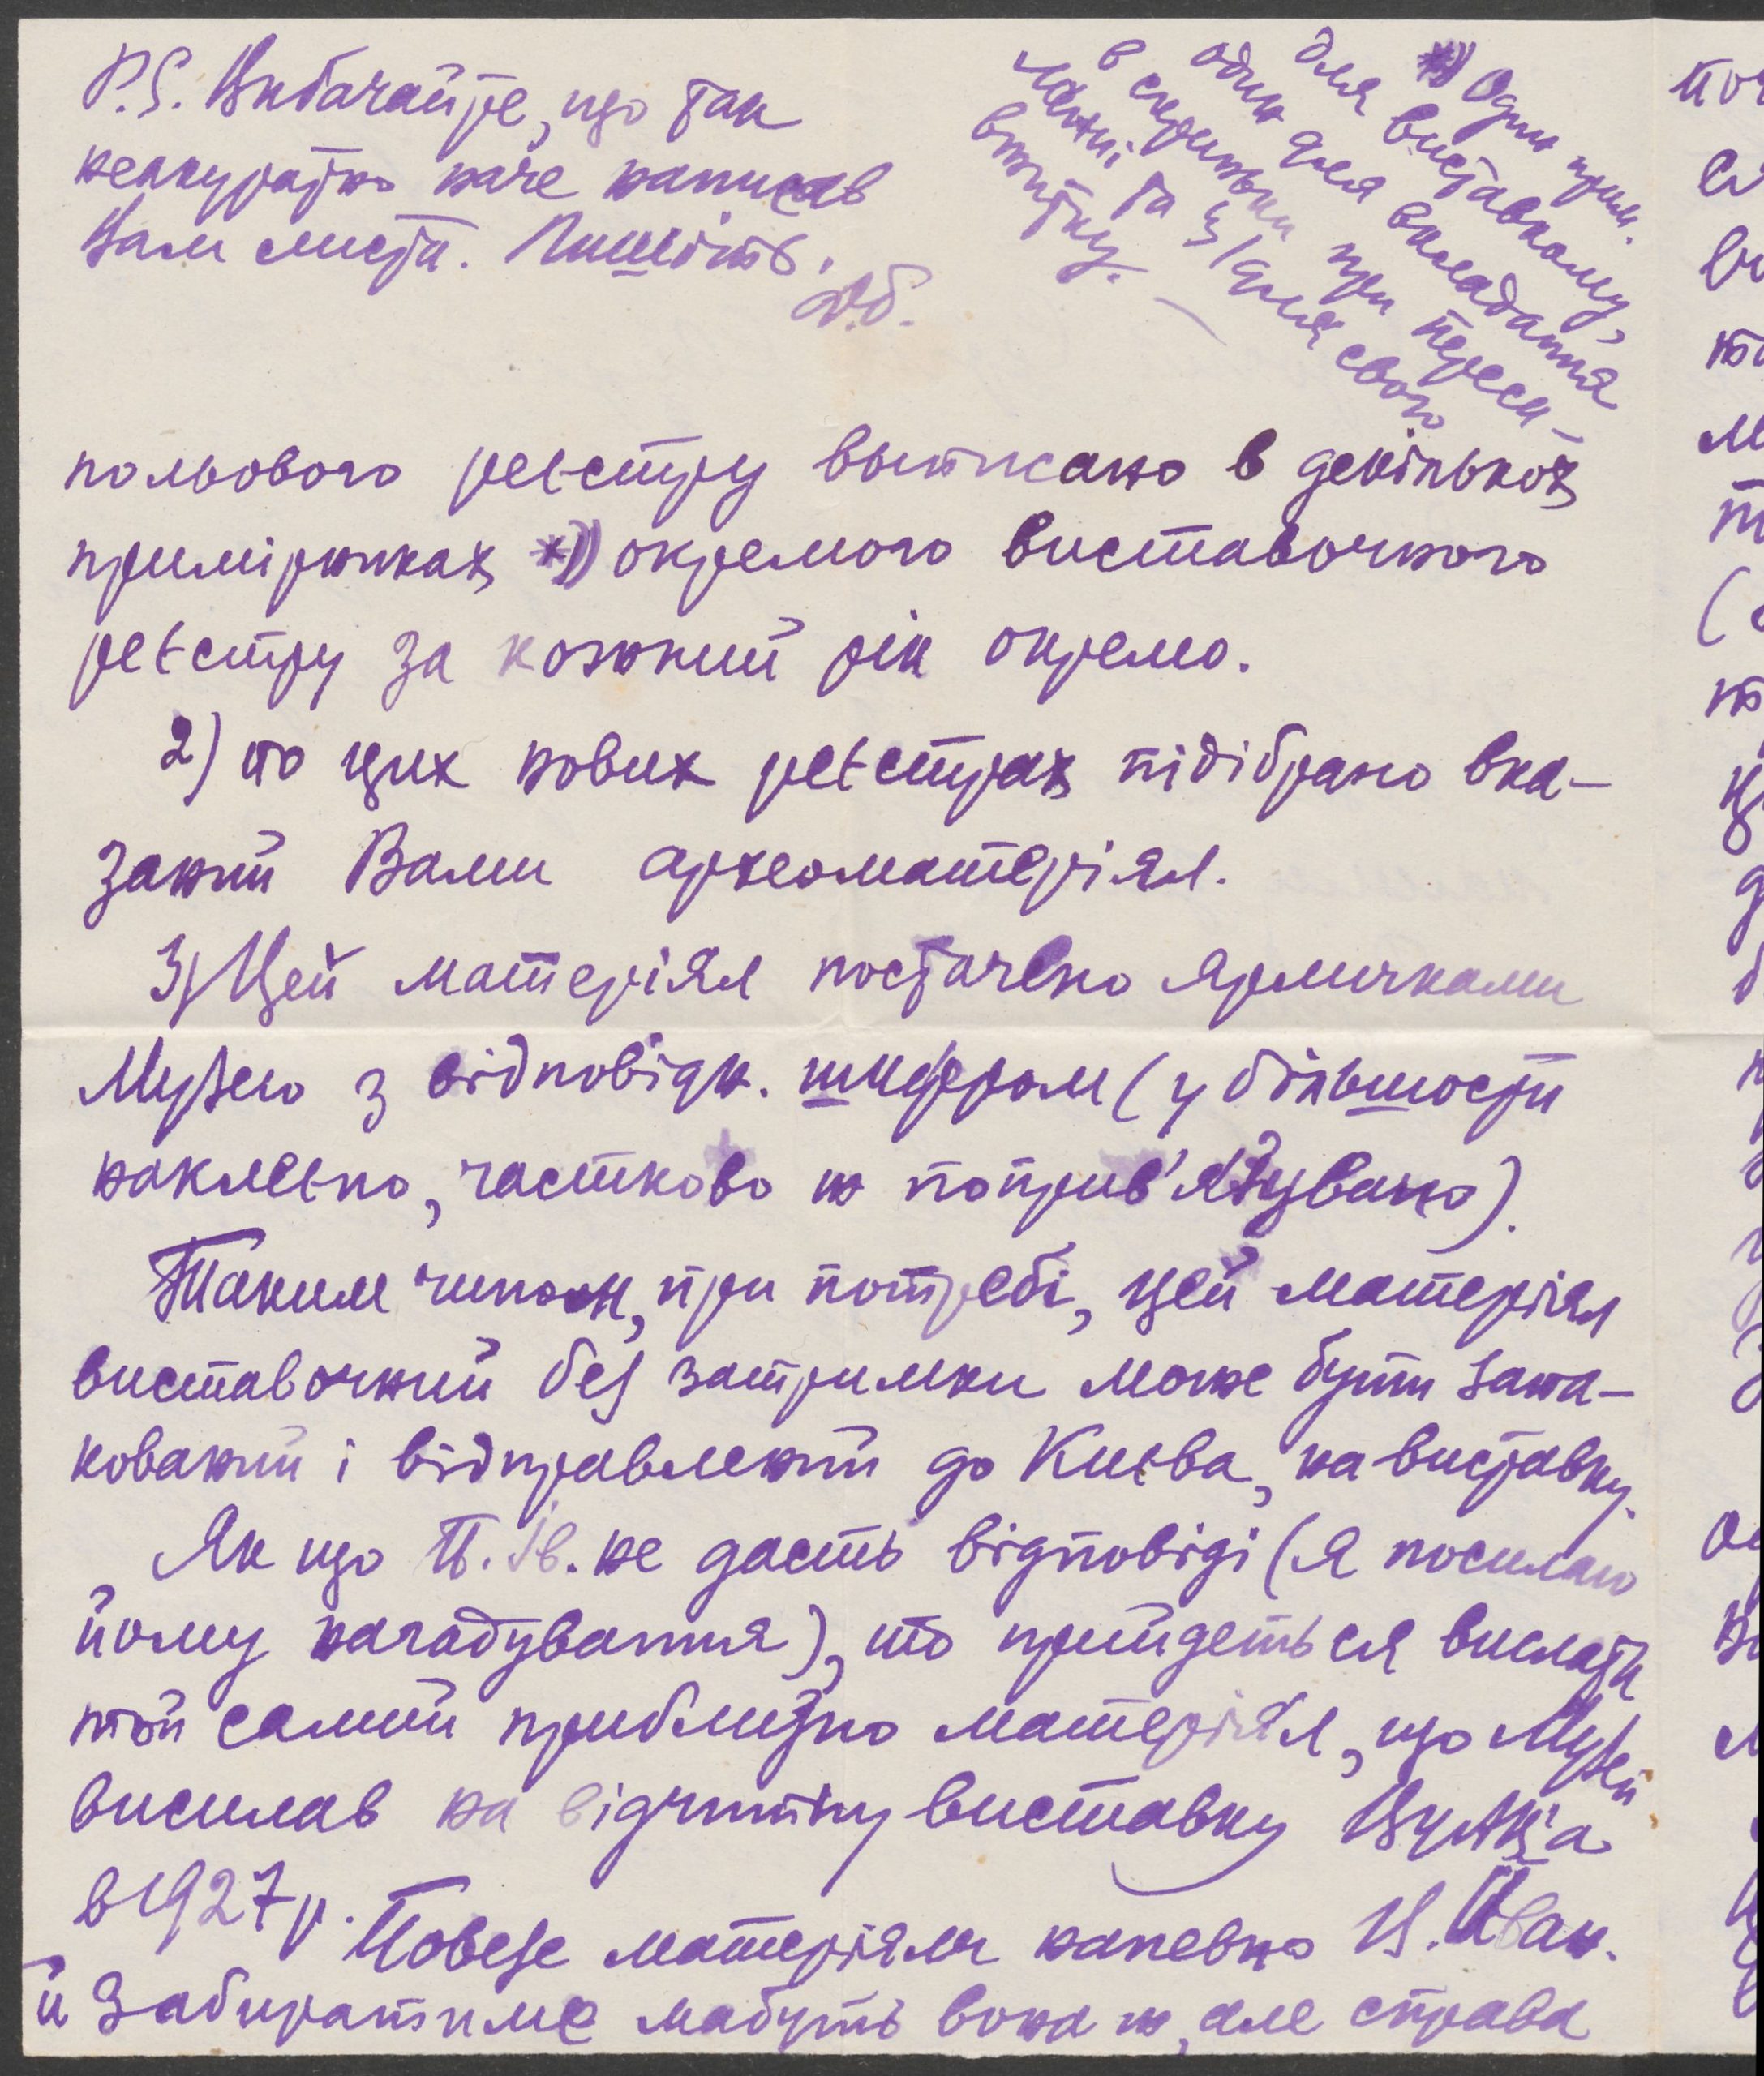 P.S. Вибачайте, що так
неакуратно наче написав
Вам листа. Пишіть.
*) Один прим.
для виставкому,
один для вкладання
в скриньки при переси-
ланні та із/для свого
вжитку. —
польового реєстру выписано в декількох
примірниках *)) окремого виставочного
реєстру за кожний рік окремо.
2) по цих нових реєстрах підібрано вка-
заний Вами археоматеріял.
3) Цей матеріял постачено ярличками
Музею з відповідн. шифром (у більшости
наклеєно, частково ж поприв'язувано).
Таким чином, при потребі, цей матеріял
виставочний без затримки може бути запа-
кований і відправлений до Києва, на виставку.
Як що П. Ів. не дасть відповіді (я посилаю
йому нагадування), то прийдеться вислати
той самий приблизно матеріял, що Музей
висилав на відчитну виставку ВУАК'а
в 1927 р. Повезе матеріяли напевно В. Иван.
й забиратиме мабуть вона ж, але справа